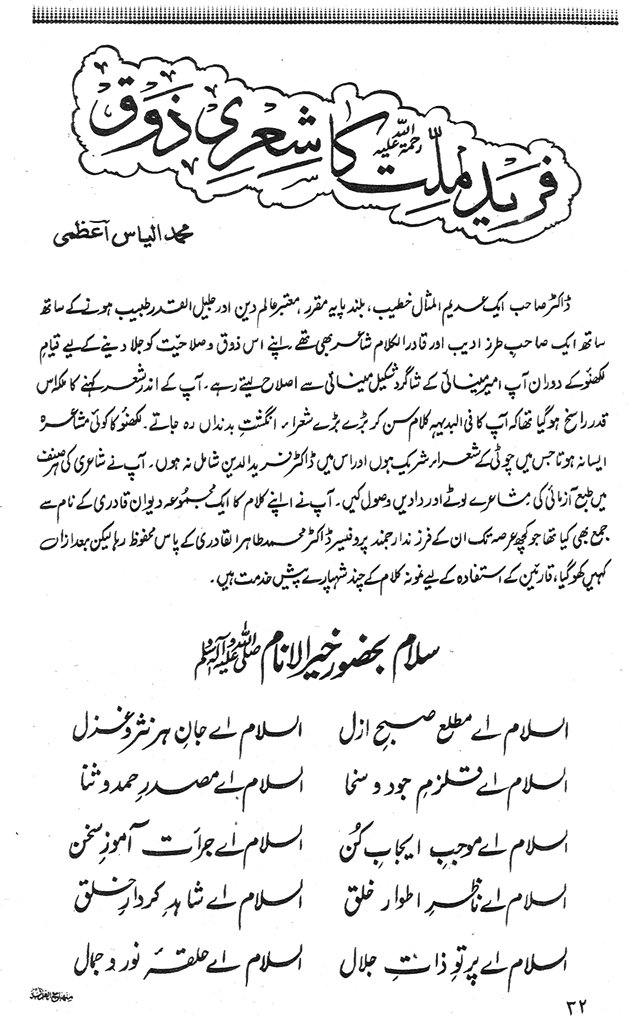 فریدِ ملّت رحمۃ اللہ علیہ کا شعری ذوق
محمد الیاس آعظمی
ڈاکٹر صاحب ایک عدیم المثال خطیب، بلند پایہ مقرر، معتبر عالم دین اور جلیل القدر طبیب ہونے کے ساتھ
ساتھ ایک صاحبِ طرز ادیب اور قادر الکلام شاعر بھی تھے۔ اپنے اس ذوق و صلاحیّت کو جلا دینے کے لیے قیامِ
لکھنؤ کے دوران آپ امیر مینائی کے شاگرد شکیل مینائی سے اصلاح لیتے رہے۔ آپ کے اندر شعر کہنے کا ملکہ اس
قدر راسخ ہوگیا تھا کہ آپ کا فی البدیہہ کلام سن کر بڑے بڑے شعراء انگشتِ بدنداں رہ جاتے۔ لکھنؤ کا کوئی مشاعرہ
ایسا نہ ہوتا جس میں چوٹی کے شعراء شریک ہوں اور اس میں ڈاکٹر فرید الدین شامل نہ ہوں۔ آپ نے شاعری کی ہر صنف
میں طبع آزمائی کی مشاعرے لوٹے اور دادیں وصول کیں۔ آپ نے اپنے کلام کا ایک مجموعہ دیوان قادری کے نام سے
جمع بھی کیا تھا جو کچھ عرصہ تک ان کے فرزند ارجمند پروفیسر ڈاکٹر محمد طاہر القادری کے پاس محفوظ رہا لیکن بعد ازاں
کہیں کھو گیا، قارئین کے استفادہ کے لیے نمونہ کلام کے چند شہپارے پیش خدمت ہیں۔
سلام بحضور خیر الانام صلی اللہ علیہ وآلہ وسلم
السلام اے مطلع صبحِ ازل السلام اے جانِ ہر نثر و غزل
السلام اے قلزمِ جود و سخا السلام اے مصدرِ حمد و ثنا
السلام اے موجبِ ایجابِ کُن السلام اے جرأت آموزِ سخن
السلام اے ناظرِ اطوارِ خلق السلام اے شاہدِ کردارِ خلق
السلام اے پرتوِ ذاتِ جلال السلام اے حلقۂ نور و جمال
۳۲